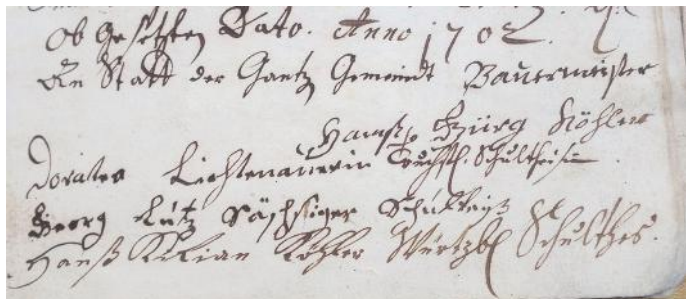 ob gesetzten Dato. Anno 1702.
An Statt der Gantz Gemeindt Bauermeister
Hanß Görg Köhler
Doratea Lichtenauerin Schultheisin
Georg Lutz Sächsiger Schultheiß
Hanß Kilian Köhler Würtzb Schulthes.